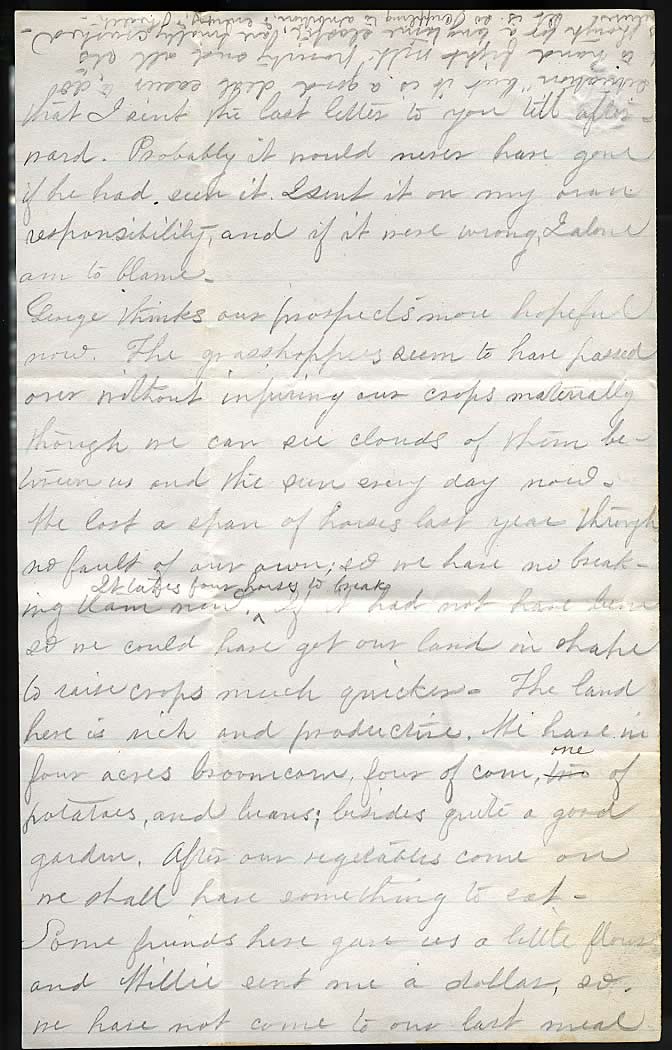 situation" but it is a good deal
hand fight with poverty and all its
though for a long time elastic, are finally crushed -
It is so crippling to ambition, & energy, & health -
that I sent the last letter to you till after-
ward. Probably it would never have gone
if he had seen it. I sent it on my own
responsibility, and if it were wrong, I alone
am to blame -
George thinks our prospects more hopeful
now. The grasshoppers seem to have passed
over without injuring our crops materially
though we can see clouds of them be-
tween us and the sun every day now -
We lost a span of horses last year through
no fault of our own; so we have no break-
It takes four horses to break
ing team now. ^ If it had not have been
so we could have got our land in shape
to raise crops much quicker - The land
here is rich and productive. We have in
four acres broomcorn, four of corn, two one of
potatoes, and beans; besides quite a good
garden. After our vegetables come on
we shall have something to eat -
Some friends here gave us a little flour
and Willie sent me a dollar, so
we have not come to our last meal